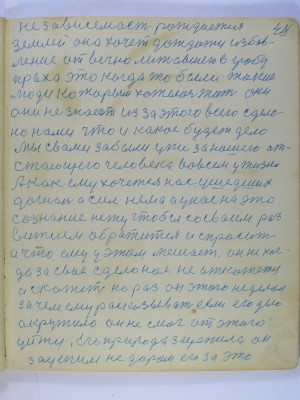 48
независемаст рождается
землей она хочет дождати избав
ление от вечно литавшего в гробу
праха это когда то были такие
люди каторый хотели жит они
они не знают из за этого всего сдела-
но нами что и какое будет дело
Мы свами забыли уже за нашего от-
стающего человека вовсем ужизни
Акак ему хочется нас ушедших
догнат а сил нема а у нас на это
сознание нету чтоб с со сваим раз
витием обратится и спросит
а что ему у этом мешает. он не ког-
да за свае сделоное не откожеты
и скажет но раз он этого неделал
зачем ему расказыват если его
окружило он не смог от этого
уйти, Его природа заразила он
за у етим не даром его за это